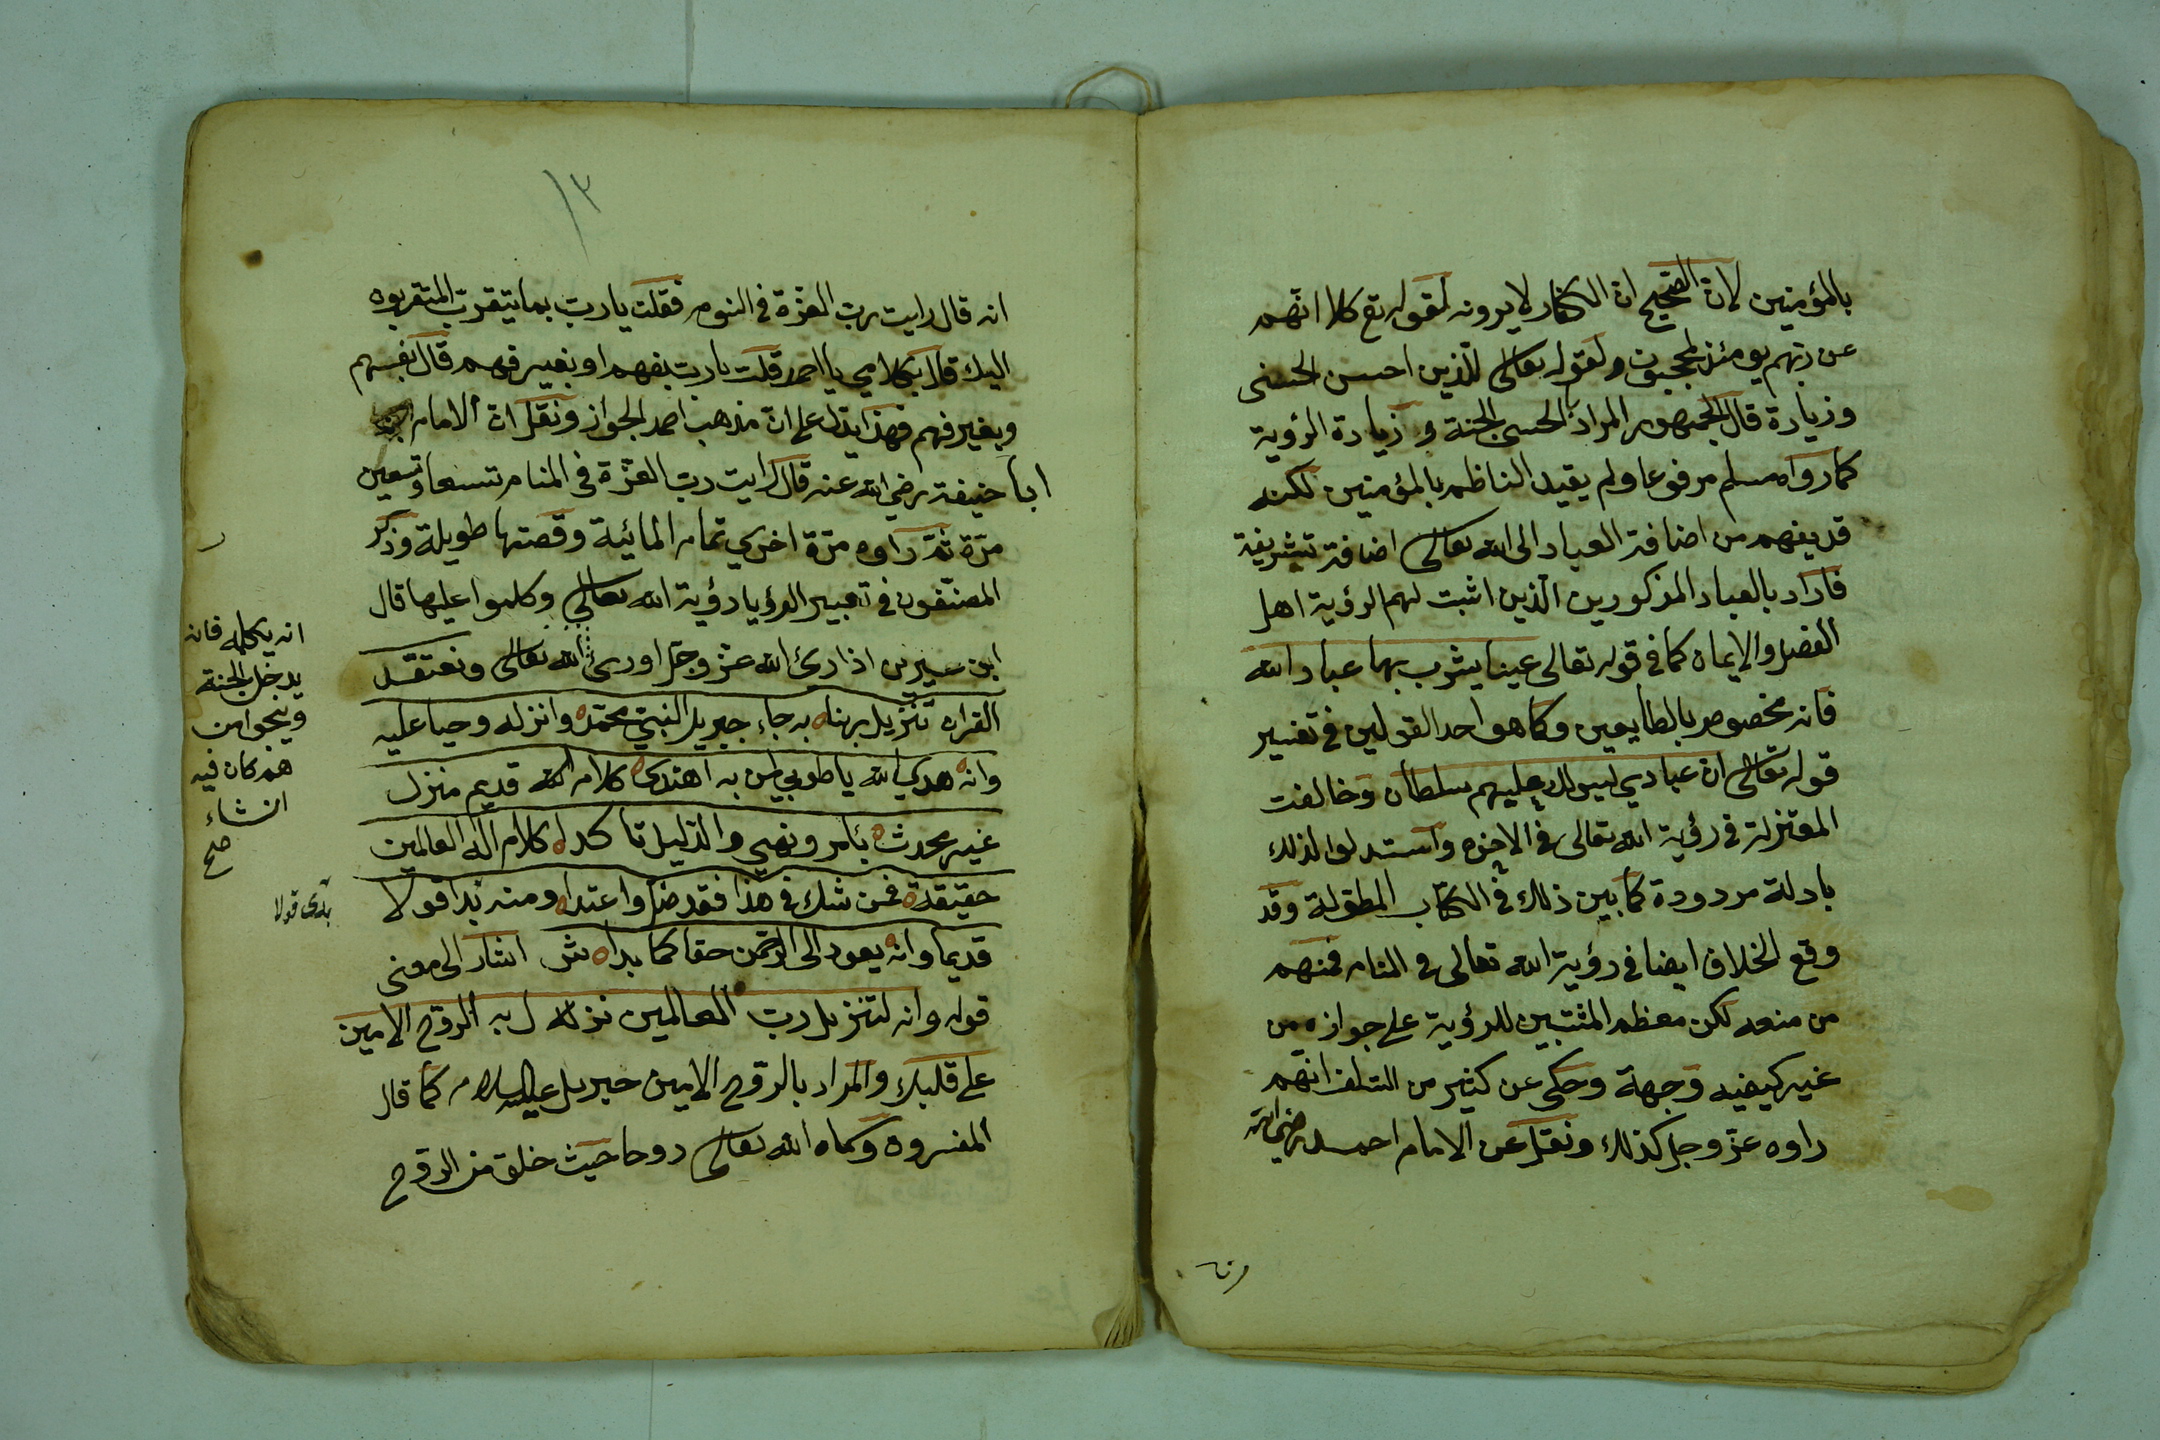 بالمؤمنين لان الصحيح ان الكفار لا يرونه لقوله تع كلا انهم
عن ربهم يومئذ لمحجوبون ولقوله تعالى للذين احسن الحسنى
وزيادة قال الجمهور المراد بالحسنى الجنة و زيادة الرؤية
كما رواه مسلم مرفوعا ولم يقيد الناظم بالمؤمنين لكنه
قد يفهم من اضافة العباد الى الله تعالى اضافة تشريفية
فاراد بالعباد المذكورين الذين اثبت لهم الرؤية اهل
الفضل والايمان كما في قوله تعالى عينا يشرب بها عباد الله
فانه مخصوص بالطايعين وكما هو احد القولين في تفسير
قوله تعالى ان عبادي ليس لك عليهم سلطان وخالفت
المعتزلة في رؤية الله تعالى في الاخرة واستدلوا لذلك
بادلة مردودة كما بين ذلك في الكتاب المطولة وقد
وقع الخلاف ايضا في رؤية الله تعالى في المنام فمنهم
من منعه لكن معظم المثبتين للرؤية على جوازه من
غير كيفيه وجهة وحكى عن كثير من السلف انهم
راوه عز وجل كذلك ونقل عن الامام احمد رضي الله
١٣
انه قال رايت رب العزة في النوم فقلت يا رب بما يتقرب المتقربون
اليك قال بكلامي يا احمد قلت يا رب بفهم او بغير فهم قال بفهم
وبغير فهم فهذا يدل على ان مذهب احمد الجواز ونقل ان الامام
ابا حنيفة رضي الله عنه قال رايت رب العزة في المنام تسعا وتسعين
مرة ثم راوه مرة اخرى تمام المائية وقصتها طويلة وذكر
المصنفون في تعبير الرؤيا رؤية الله تعالى وكلموا عليها قال
ابن سيرين اذا رئ الله عز وجل او رئ الله تعالى ونعتقد
القران تنزيل ربنا به جاء جبريل النبي محمد وانزله وحيا عليه
وانه هدى الله يا طوبى لمن به اهتدى كلام الله قديم منزل
غير محدث بامر ونهي والدليل تاكدا كلام اله العالمين
حقيقة فمن شك في هذا فقد ضل واعتدا ومنه بدا قولا
قديما وانه يعود الى الرحمن حقا كما بدا ش اشار الى معنى
قوله وانه لتنزيل رب العالمين نزل به الروح الامين
على قلبك والمراد بالروح الامين جبريل عليه السلام كما قال
المفسرون وسماه الله تعالى روحا حيث خلق من الروح
انه يكلمه فانه
يدخل الجنة
وينجوا من
هم كان فيه
انشاء
صح
بدى قولا